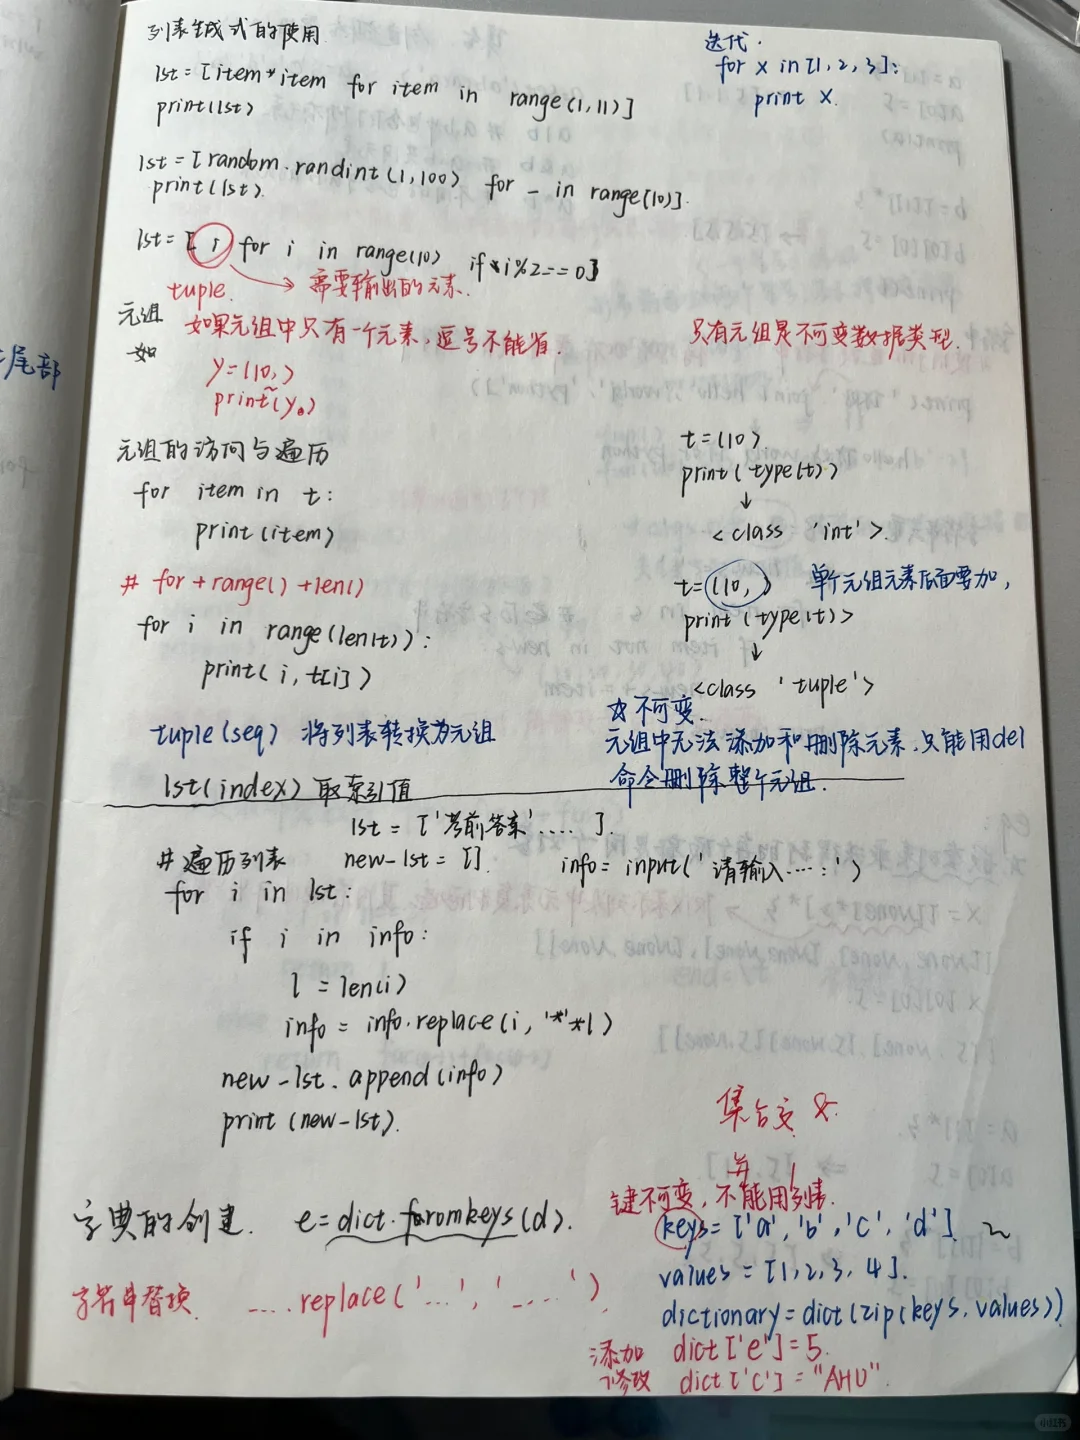 列表生成式的使用.
lst = [item*item for item in range(1,11)]
print(lst)
迭代.
for x in [1, 2, 3]:
print x.
lst = [random.randint(1,100) for _ in range(10)].
print(lst).
lst = [ i for i in range(10) if i%2==0]
tuple. → 需要输出的元素.
元组 如果元组中只有一个元素,逗号不能省.
只有元组是不可变数据类型.
如
y=(10,)
print(y)
元组的访问与遍历
for item in t:
print(item)
t=(10).
print(type(t))
↓
<class 'int'>.
# for+range()+len()
for i in range(len(t)):
print(i, t[i])
t=(10,) 单个元组元素后面要加,
print(type(t))
↓
<class 'tuple'>
tuple(seq) 将列表转换为元组
lst(index) 取索引值
☆不可变.
元组中无法添加和删除元素.只能用del
命令删除整个元组.
lst = ['考前答案'....].
# 遍历列表 new-lst = []. info = input('请输入....:')
for i in lst:
if i in info:
l = len(i)
info = info.replace(i, '*'*l)
new-lst.append(info)
print(new-lst).
集合交 &.
键不可变,不能用列表.
字典的创建. e=dict.fromkeys(d).
keys=['a','b','c','d'].
values = [1,2,3,4].
dictionary=dict(zip(keys,values))
字符串替换. ....replace('...', '....').
添加 dict['e']=5.
修改 dict['c']="AHU".
尾部
小红书